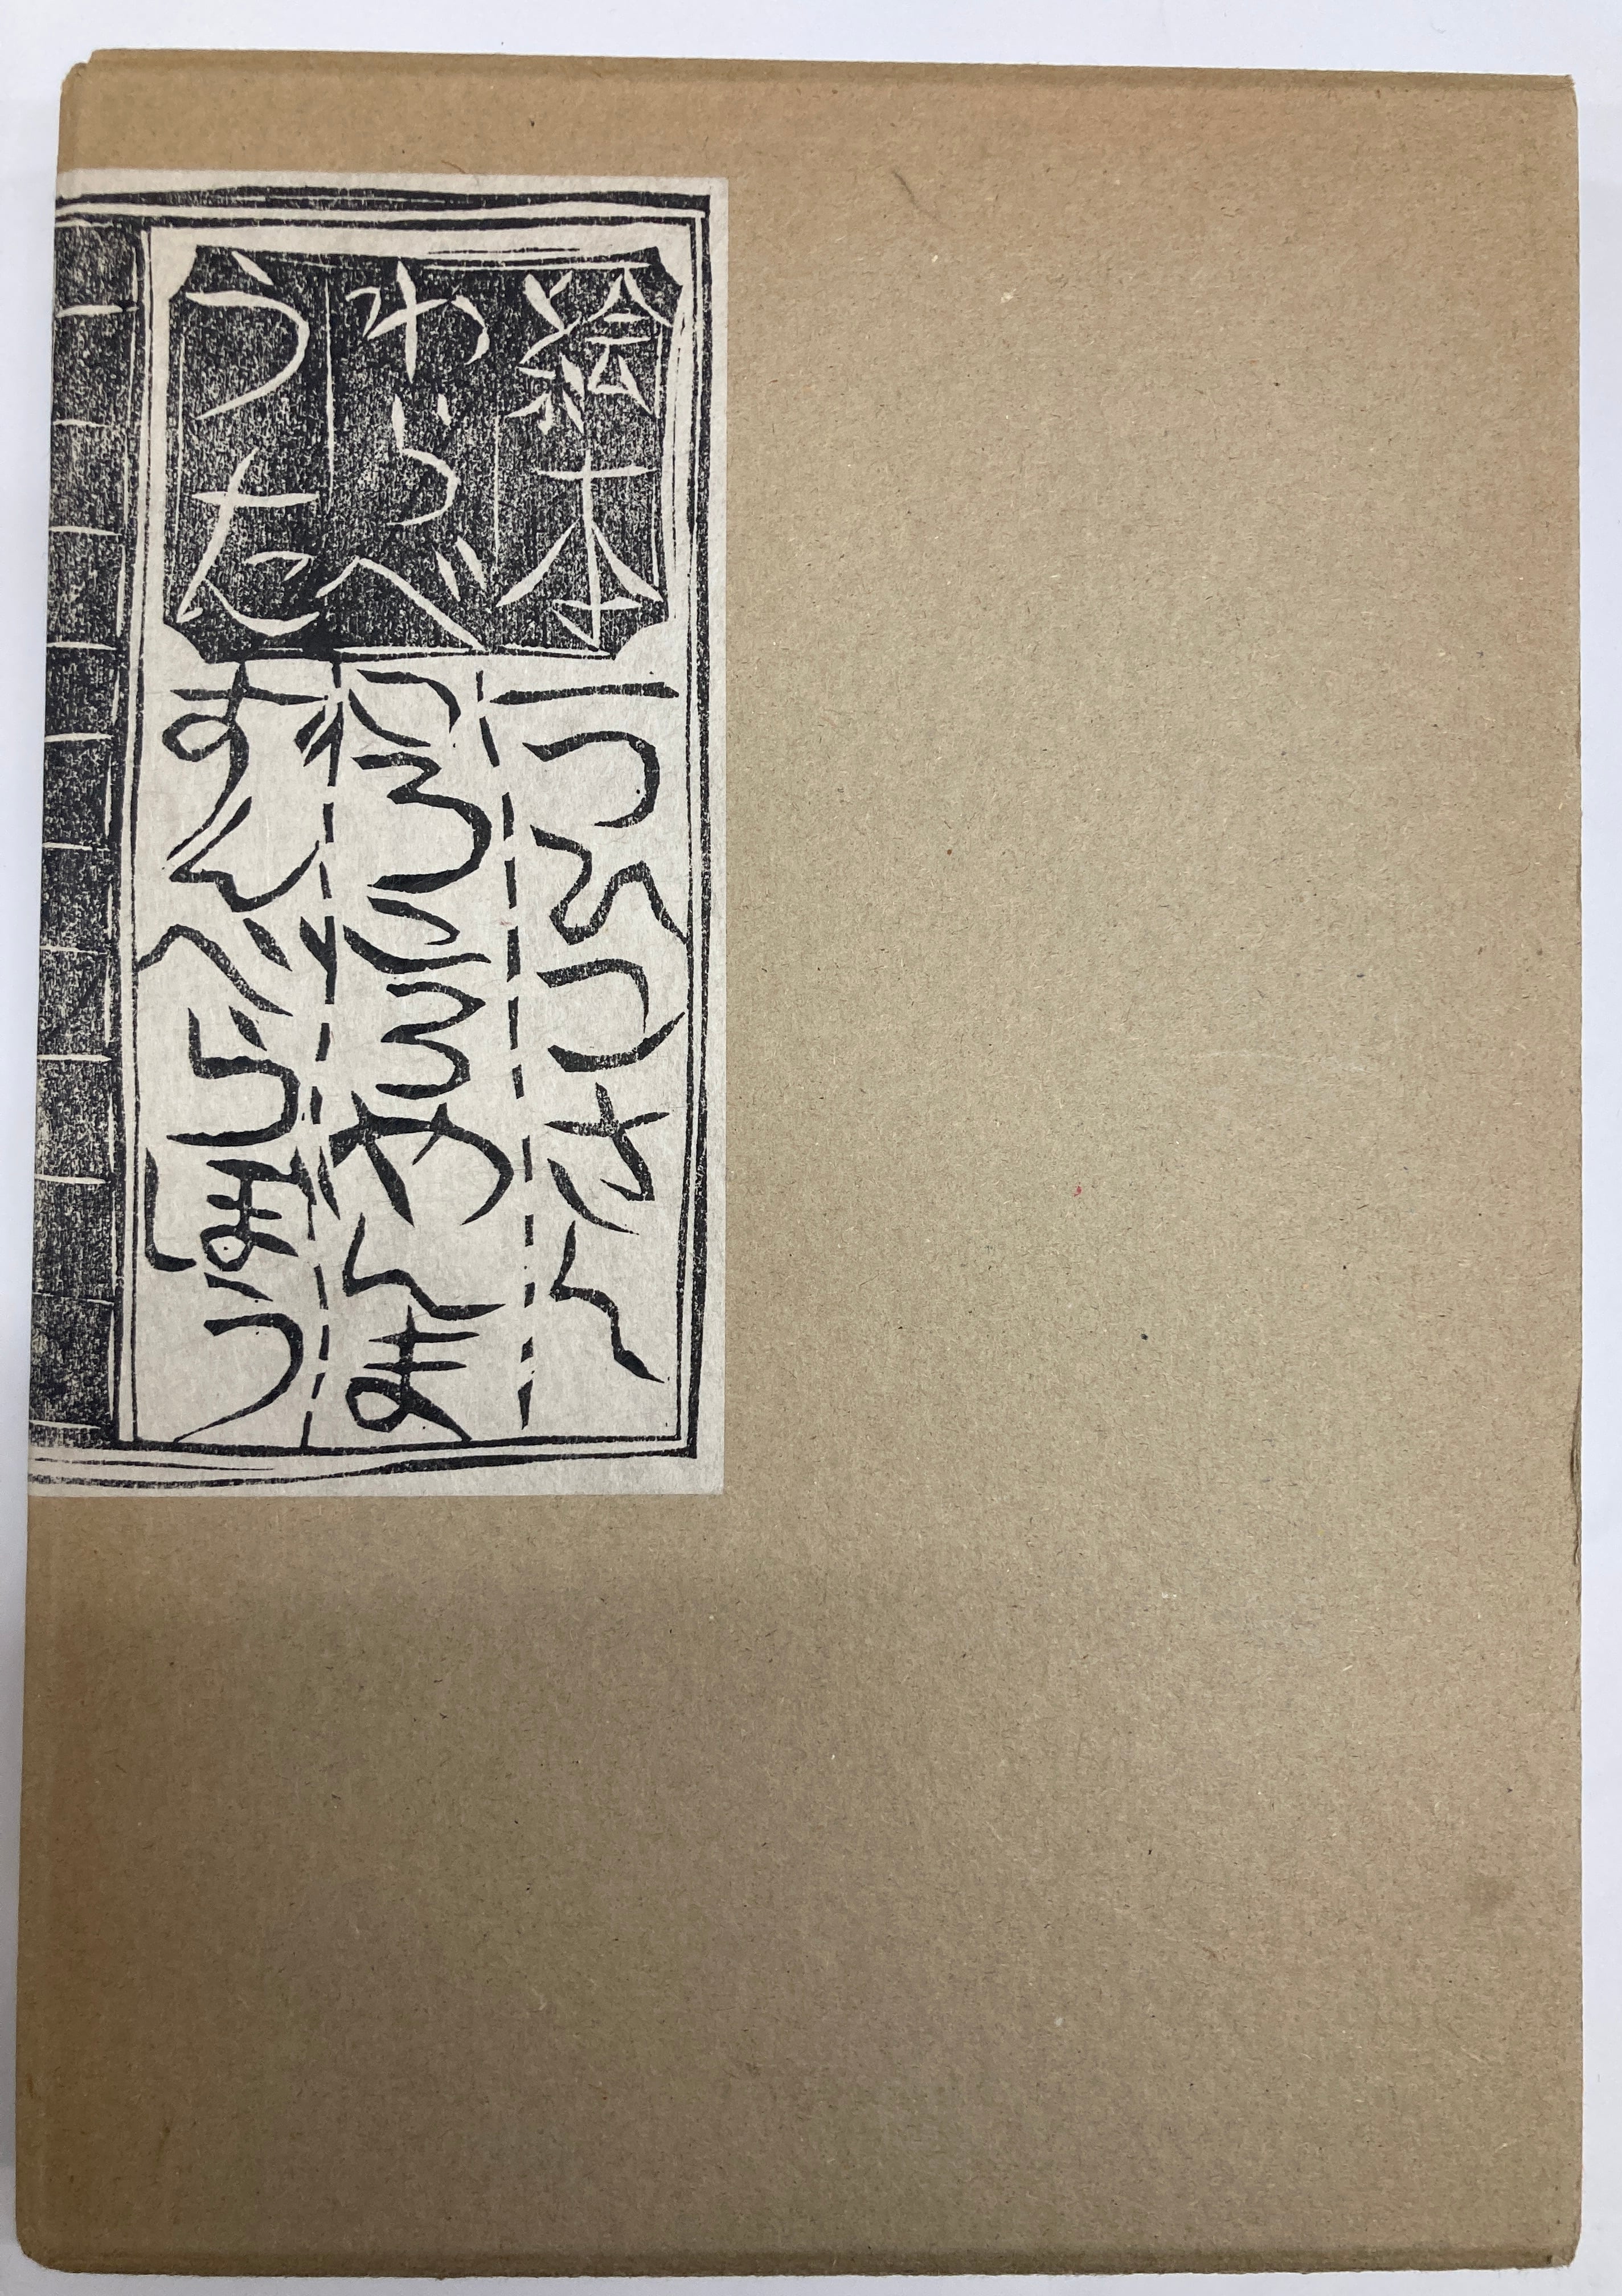 絵本
わらべ
うた
一つひこさん
ころころやんま
すんべらぼう